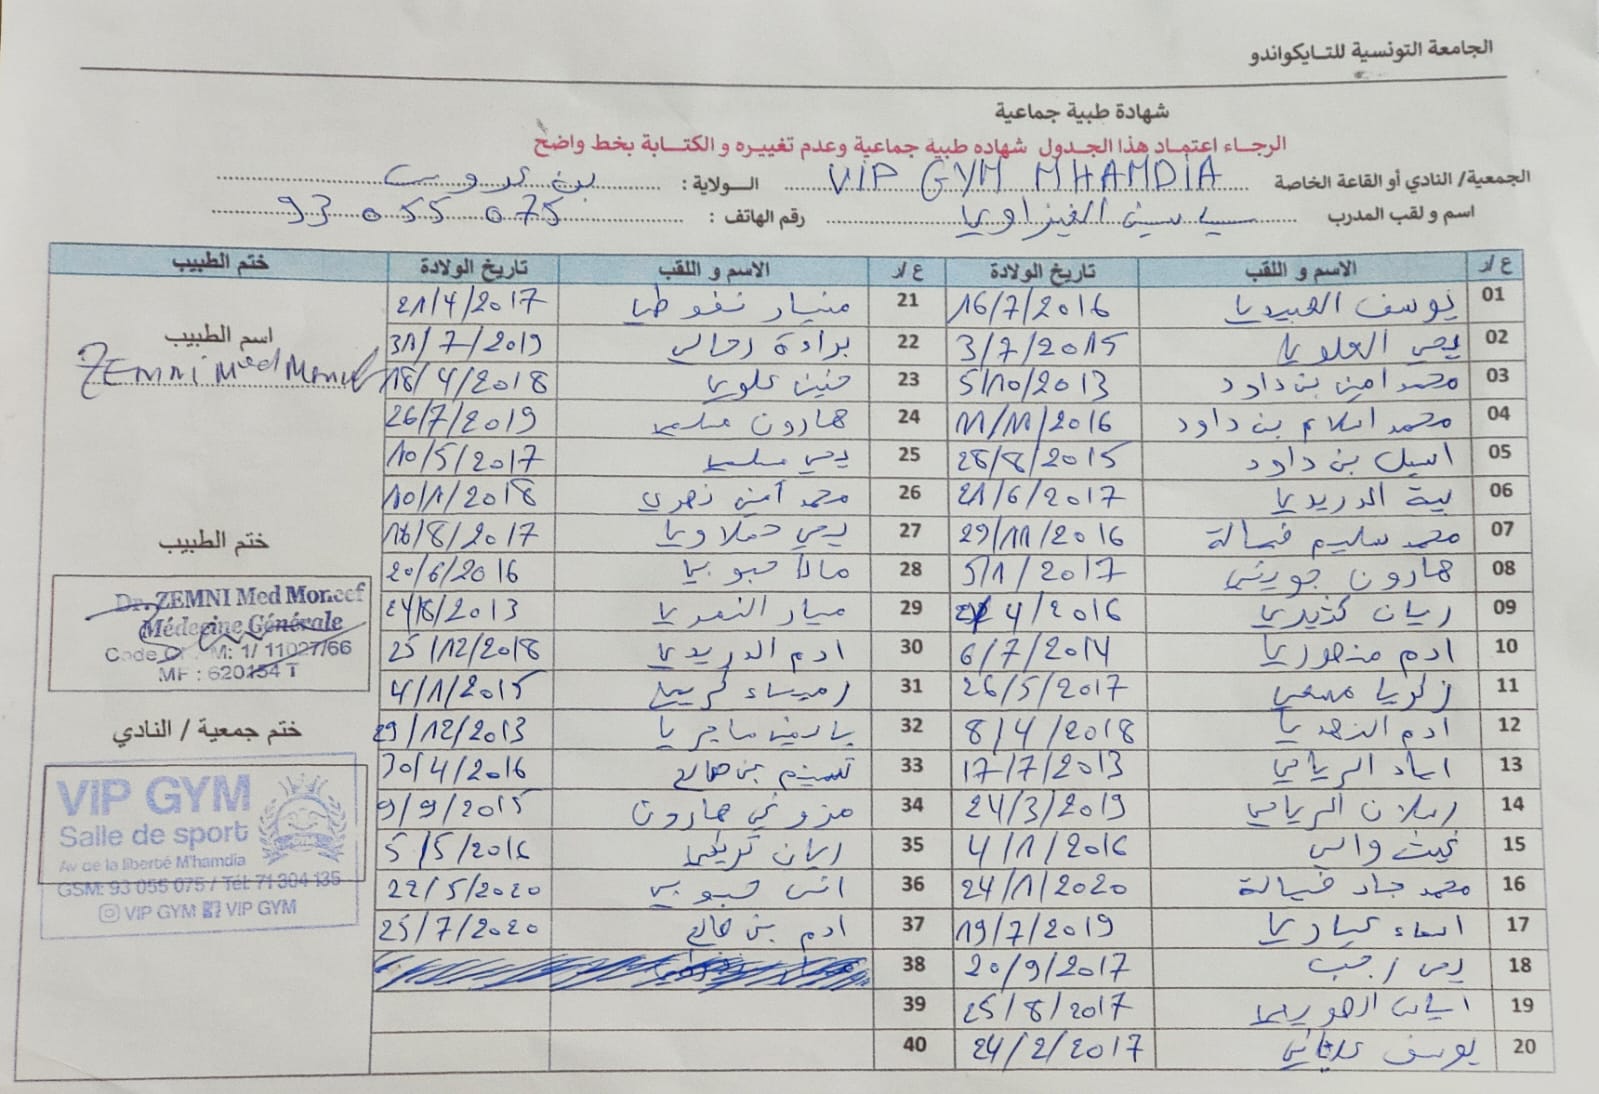 الجامعة التونسية للتايكواندو
شهادة طبية جماعية
الرجاء اعتماد هذا الجدول شهاده طبية جماعية وعدم تغييره و الكتابة بخط واضح
الجمعية/ النادي أو القاعة الخاصة VIP GYM MHAMDIA الولاية : بن عروس
اسم و لقب المدرب ياسين الغيزاوي رقم الهاتف : 93 055 075
ع/ر الاسم و اللقب تاريخ الولادة ع/ر الاسم و اللقب تاريخ الولادة ختم الطبيب
01 يوسف العبيدي 16/7/2016 21 منيار نفوطي 21/4/2017
02 يحي العلوي 3/7/2015 22 برادة رحالي 31/7/2019
03 محمد امين بن داود 5/10/2013 23 حنين علوي 18/4/2018
04 محمد اسلام بن داود 11/11/2016 24 هارون 26/7/2019
05 اسيل بن داود 28/8/2015 25 يحي 10/5/2017
06 بية الدريدي 21/6/2017 26 محمد أمين زهري 10/1/2018
07 محمد سليم فيالة 29/11/2016 27 يحي حملاوي 16/8/2017
08 هارون جويني 5/1/2017 28 حبوبي 20/6/2016
09 ريان كثيري 4/2016 29 ميار النمري 24/8/2013
10 ادم منصوري 6/7/2014 30 ادم الدريدي 25/12/2018
11 زكريا 26/5/2017 31 رميساء كريم 4/1/2015
12 ادم الزهدي 8/4/2018 32 يارين ماجري 29/12/2013
13 اياد الرياحي 17/7/2013 33 بن صالح 30/4/2016
14 رسلان الرياحي 24/3/2019 34 مزوغي هارون 9/9/2015
15 غيث والي 4/1/2016 35 ريان 5/5/2016
16 محمد جاد فيالة 24/1/2020 36 انس حبوبي 22/5/2020
17 اسماء عياري 19/7/2019 37 ادم بن صالح 25/7/2020
18 رجب 20/9/2017 38
19 25/8/2017 39
20 يوسف 24/2/2017 40
اسم الطبيب
ZEMNI Med Moncef
ختم الطبيب
Dr. ZEMNI Med Moncef
Médecine Générale
Code M: 1/ 11027/66
MF : 620154 T
ختم جمعية / النادي
VIP GYM
Salle de sport
Av de la liberté M'hamdia
GSM: 93 055 075 / Tél: 71 304 135
VIP GYM VIP GYM